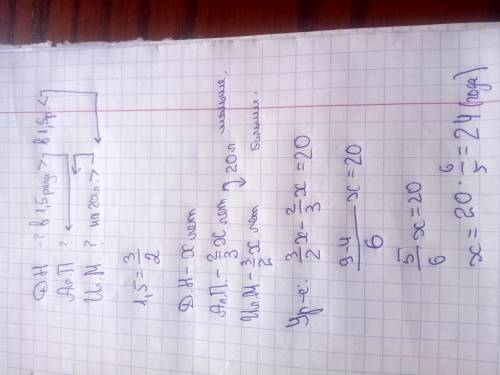 Д.Н ? в 1,5 раза > в 1,5р <
Ал.П ?
Ил.М ? на 20л. >
1,5 = 3/2
Д.Н - x лет
Ал.П. - 2/3 x лет меньше,
Ил.М - 3/2 x лет 20л больше.
Ур-е: 3/2 x - 2/3 x = 20
9-4/6 x = 20
5/6 x = 20
x = 20 · 6/5 = 24 (года)